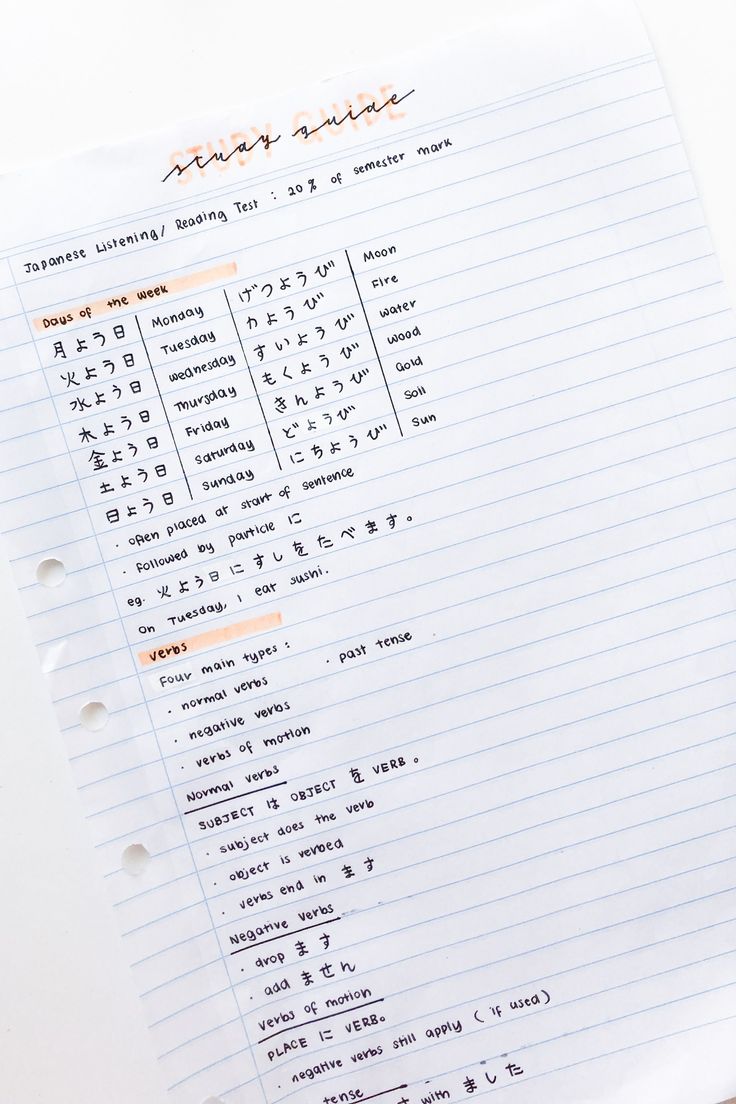 STUDY GUIDE
study guide
Japanese Listening / Reading Test : 20% of semester mark
Days of the week
月よう日 Monday げつようび Moon
火よう日 Tuesday かようび Fire
水よう日 Wednesday すいようび water
木よう日 Thursday もくようび wood
金よう日 Friday きんようび Gold
土よう日 Saturday どようび Soil
日よう日 Sunday にちようび Sun
· often placed at start of sentence
· Followed by particle に
eg. 火よう日にすしをたべます。
On Tuesday, I eat sushi.
Verbs
Four main types :
· normal verbs · past tense
· negative verbs
· verbs of motion
Normal verbs
SUBJECT は OBJECT を VERB。
· subject does the verb
· object is verbed
· verbs end in ます
Negative verbs
· drop ます
· add ません
Verbs of motion
PLACE に VERB。
· negative verbs still apply (if used)
tense
with ました